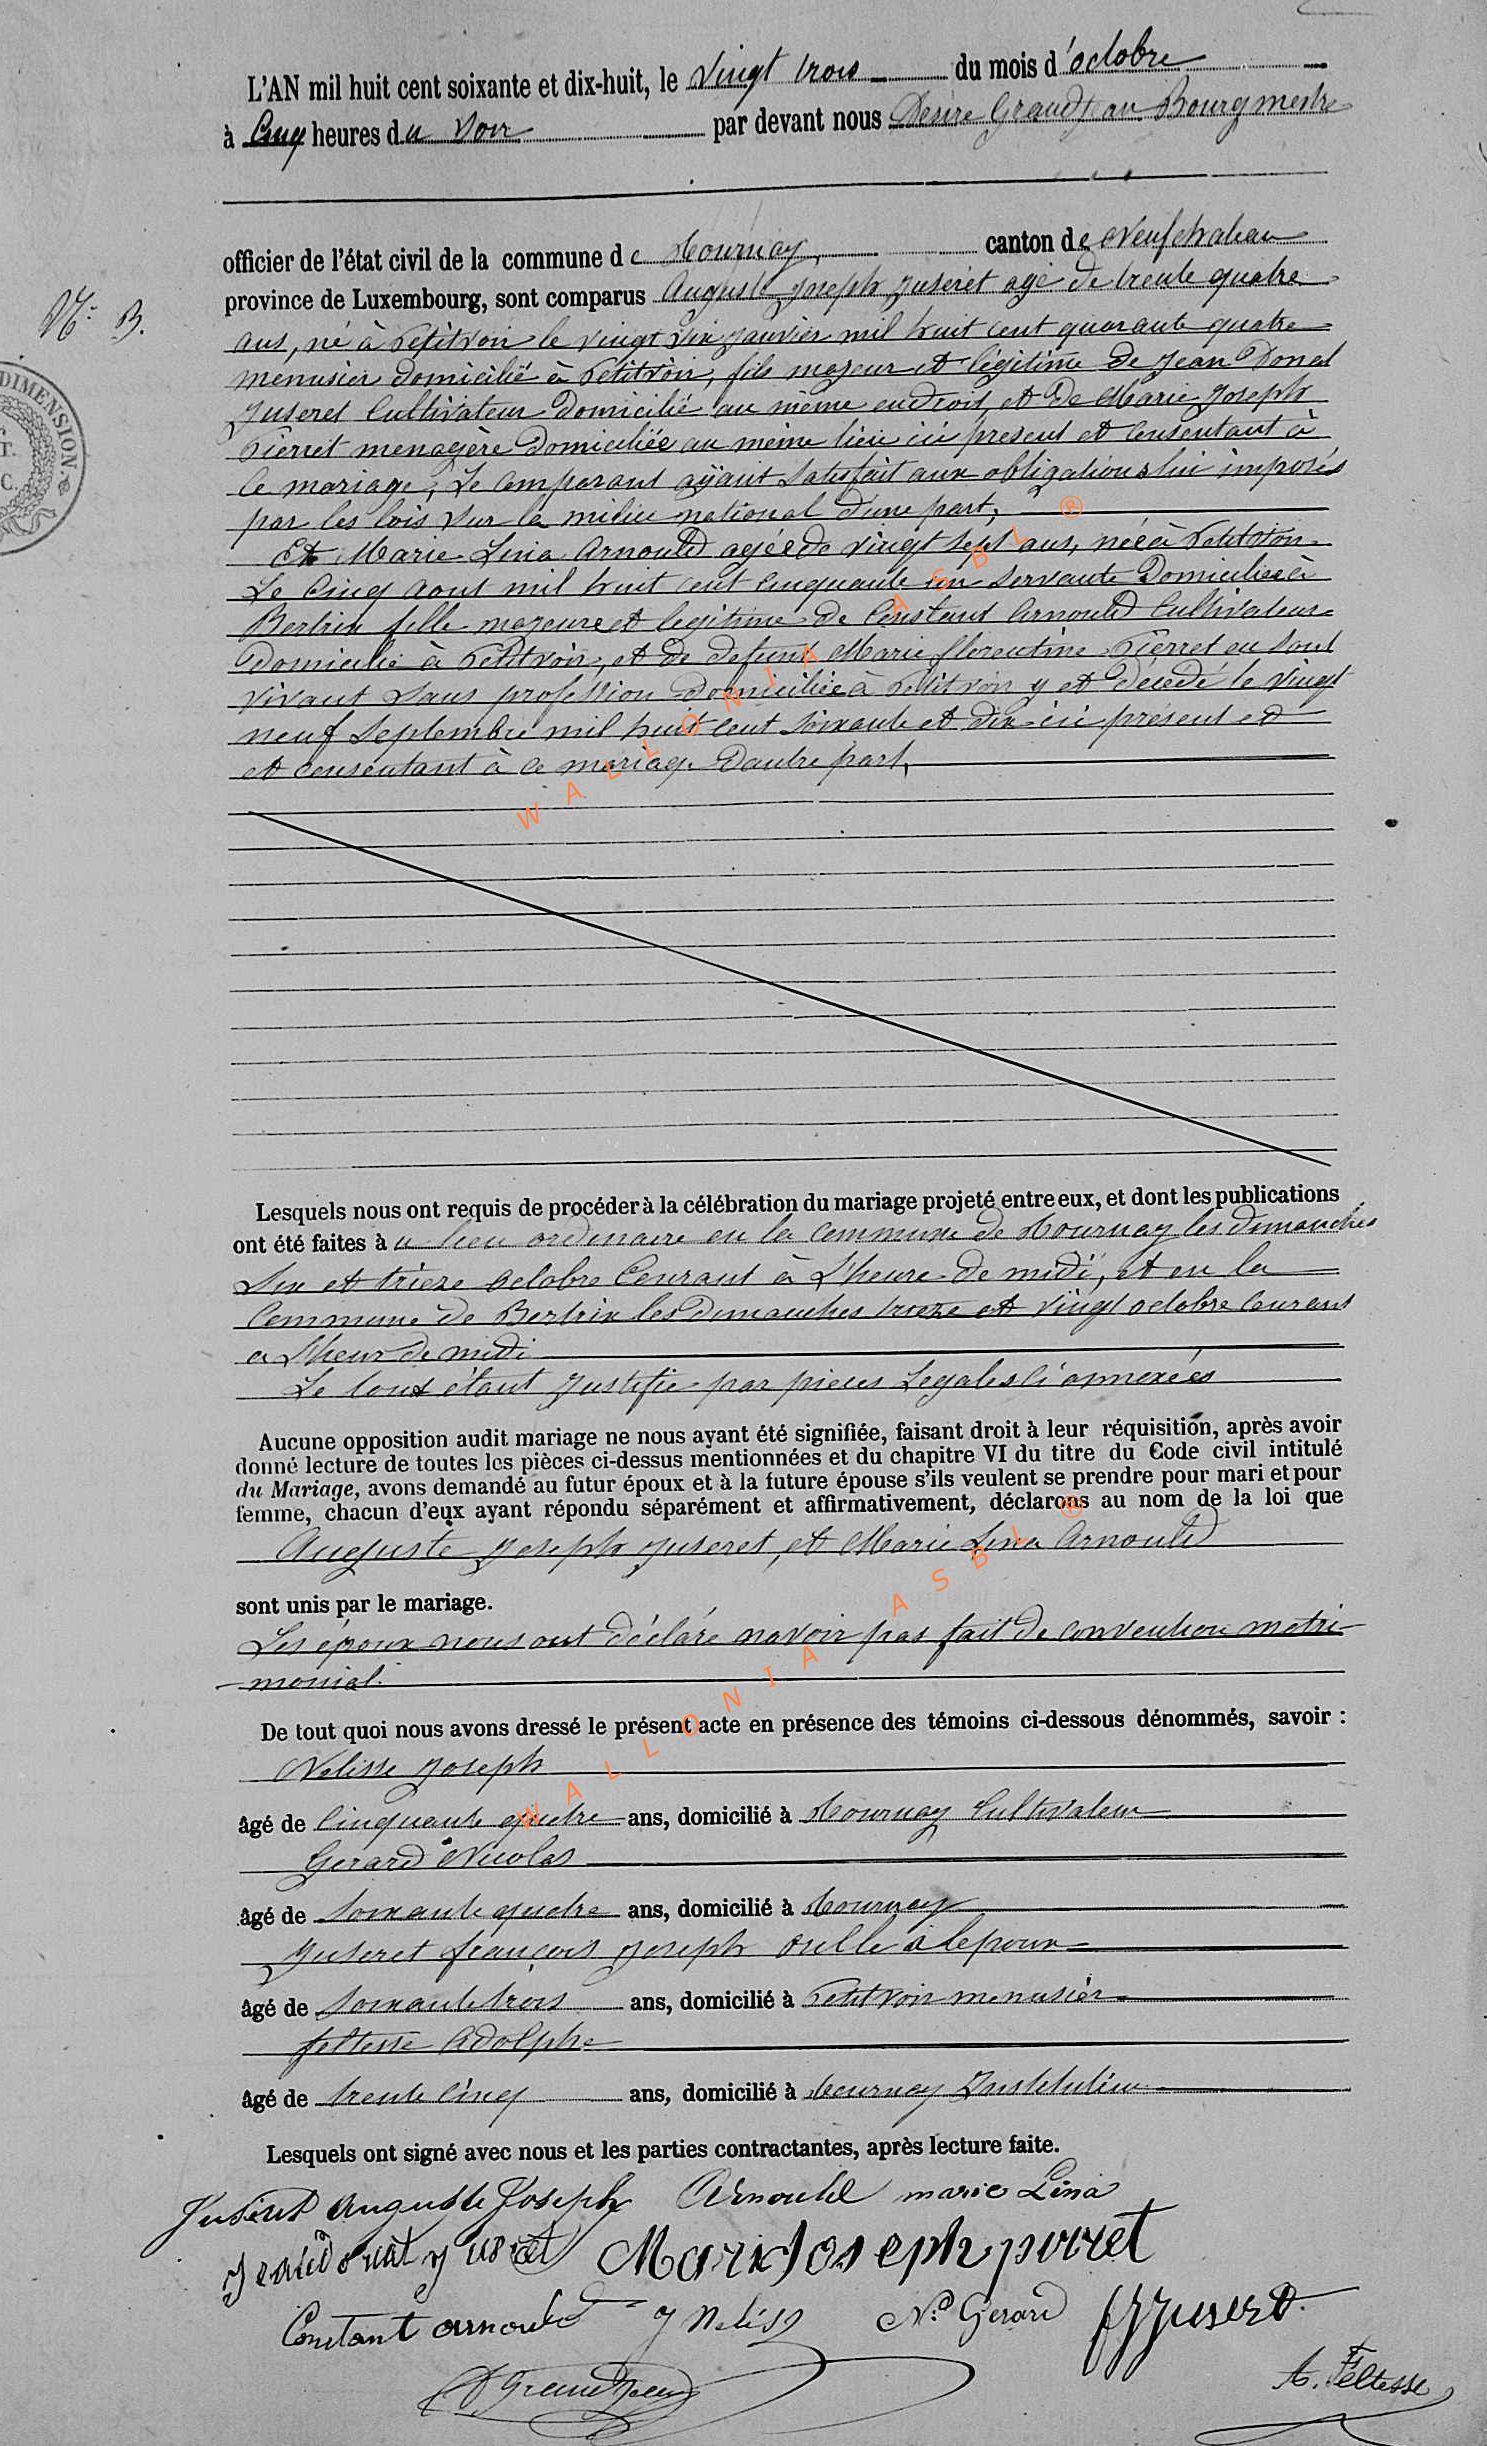 L'AN mil huit cent soixante et dix-huit, le vingt trois du mois d'octobre
à Cinq heures du Soir par devant nous Désiré Grandjean Bourgmestre
officier de l'état civil de la commune de Tournay canton de Neufchateau
province de Luxembourg, sont comparus Auguste Joseph Juseret agé de trente quatre
N° 8.
ans, né à Petitvoir le vingt six janvier mil huit cent quarante quatre
menusier domicilié à Petitvoir, fils majeur et légitime de Jean Donat
Juseret Cultivateur Domicilié au même endroit, et De Marie Joseph
Pierret menagère Domiciliée au même lieu ici present et Consentant à
Ce mariage, Le Comparant ayant Satisfait aux obligations lui imposés
par les lois sur la milice national d'une part,
Et Marie Lina Arnould agée de vingt Sept ans, née à Petitvoir
Le Cinq aout mil huit cent Cinquante un Servante Domiciliée à
Bertrix fille majeure et legitime de Constant Arnould Cultivateur
Domicilié à Petitvoir, et de defunt Marie florentine Pierret en sont
vivant Sans profession Domiciliée à Petitvoir y et Décedé le vingt
neuf Septembre mil huit cent Soixante et dix ici présent et
et consentant à ce mariage D'autre part,
Lesquels nous ont requis de procéder à la célébration du mariage projeté entre eux, et dont les publications
ont été faites au lieu ordinaire en la Commune de Tournay les dimanches
Six et trieze octobre Courant à L'heure de midi, et en la
Commune de Bertrix les Dimanches trieze et vingt octobre Courant
a L'heur de midi
Le tout étant Justifie par pieces Legales ci annexées
Aucune opposition audit mariage ne nous ayant été signifiée, faisant droit à leur réquisition, après avoir
donné lecture de toutes les pièces ci-dessus mentionnées et du chapitre VI du titre du Code civil intitulé
du Mariage, avons demandé au futur époux et à la future épouse s'ils veulent se prendre pour mari et pour
femme, chacun d'eux ayant répondu séparément et affirmativement, déclarons au nom de la loi que
Auguste Joseph Juseret, et Marie Lina Arnould
sont unis par le mariage.
Les époux nous ont déclaré navoir pas fait De Convention matri-
-monial.
De tout quoi nous avons dressé le présent acte en présence des témoins ci-dessous dénommés, savoir :
Nelisse Joseph
âgé de Cinquante quatre ans, domicilié à Tournay Cultivateur
Gerard Nicolas
âgé de Soixante quatre ans, domicilié à Tournay
Juseret françois Joseph à lepoux
âgé de Soixante trois ans, domicilié à Petitvoir menusier
feltesse Adolphe
âgé de trente Cinq ans, domicilié à Tournay Instituteur
Lesquels ont signé avec nous et les parties contractantes, après lecture faite.
Juseret Auguste Joseph Arnould marie Lina
Jean donat juseret Marie Joseph pirret
Constant arnould J Nelisse Nas Gerard fJJuseret
D Grandjean A. Feltesse
DIMENSION
WALLONIA ASBL ®
WALLONIA ASBL ®